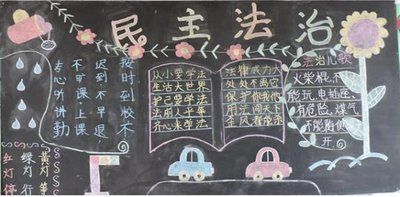 民主法治
按时到校不
迟到不早退
不旷课·上课
专心听讲勤
红灯停
绿灯行
黄灯等
从小要学法
生活大世界
护己要学法
人平等
齐心来学法
法律威力大
处处不离它
保护你我他
法治儿歌
火柴棍，不
能玩，电插座、
有危险，煤气
不能随便
开